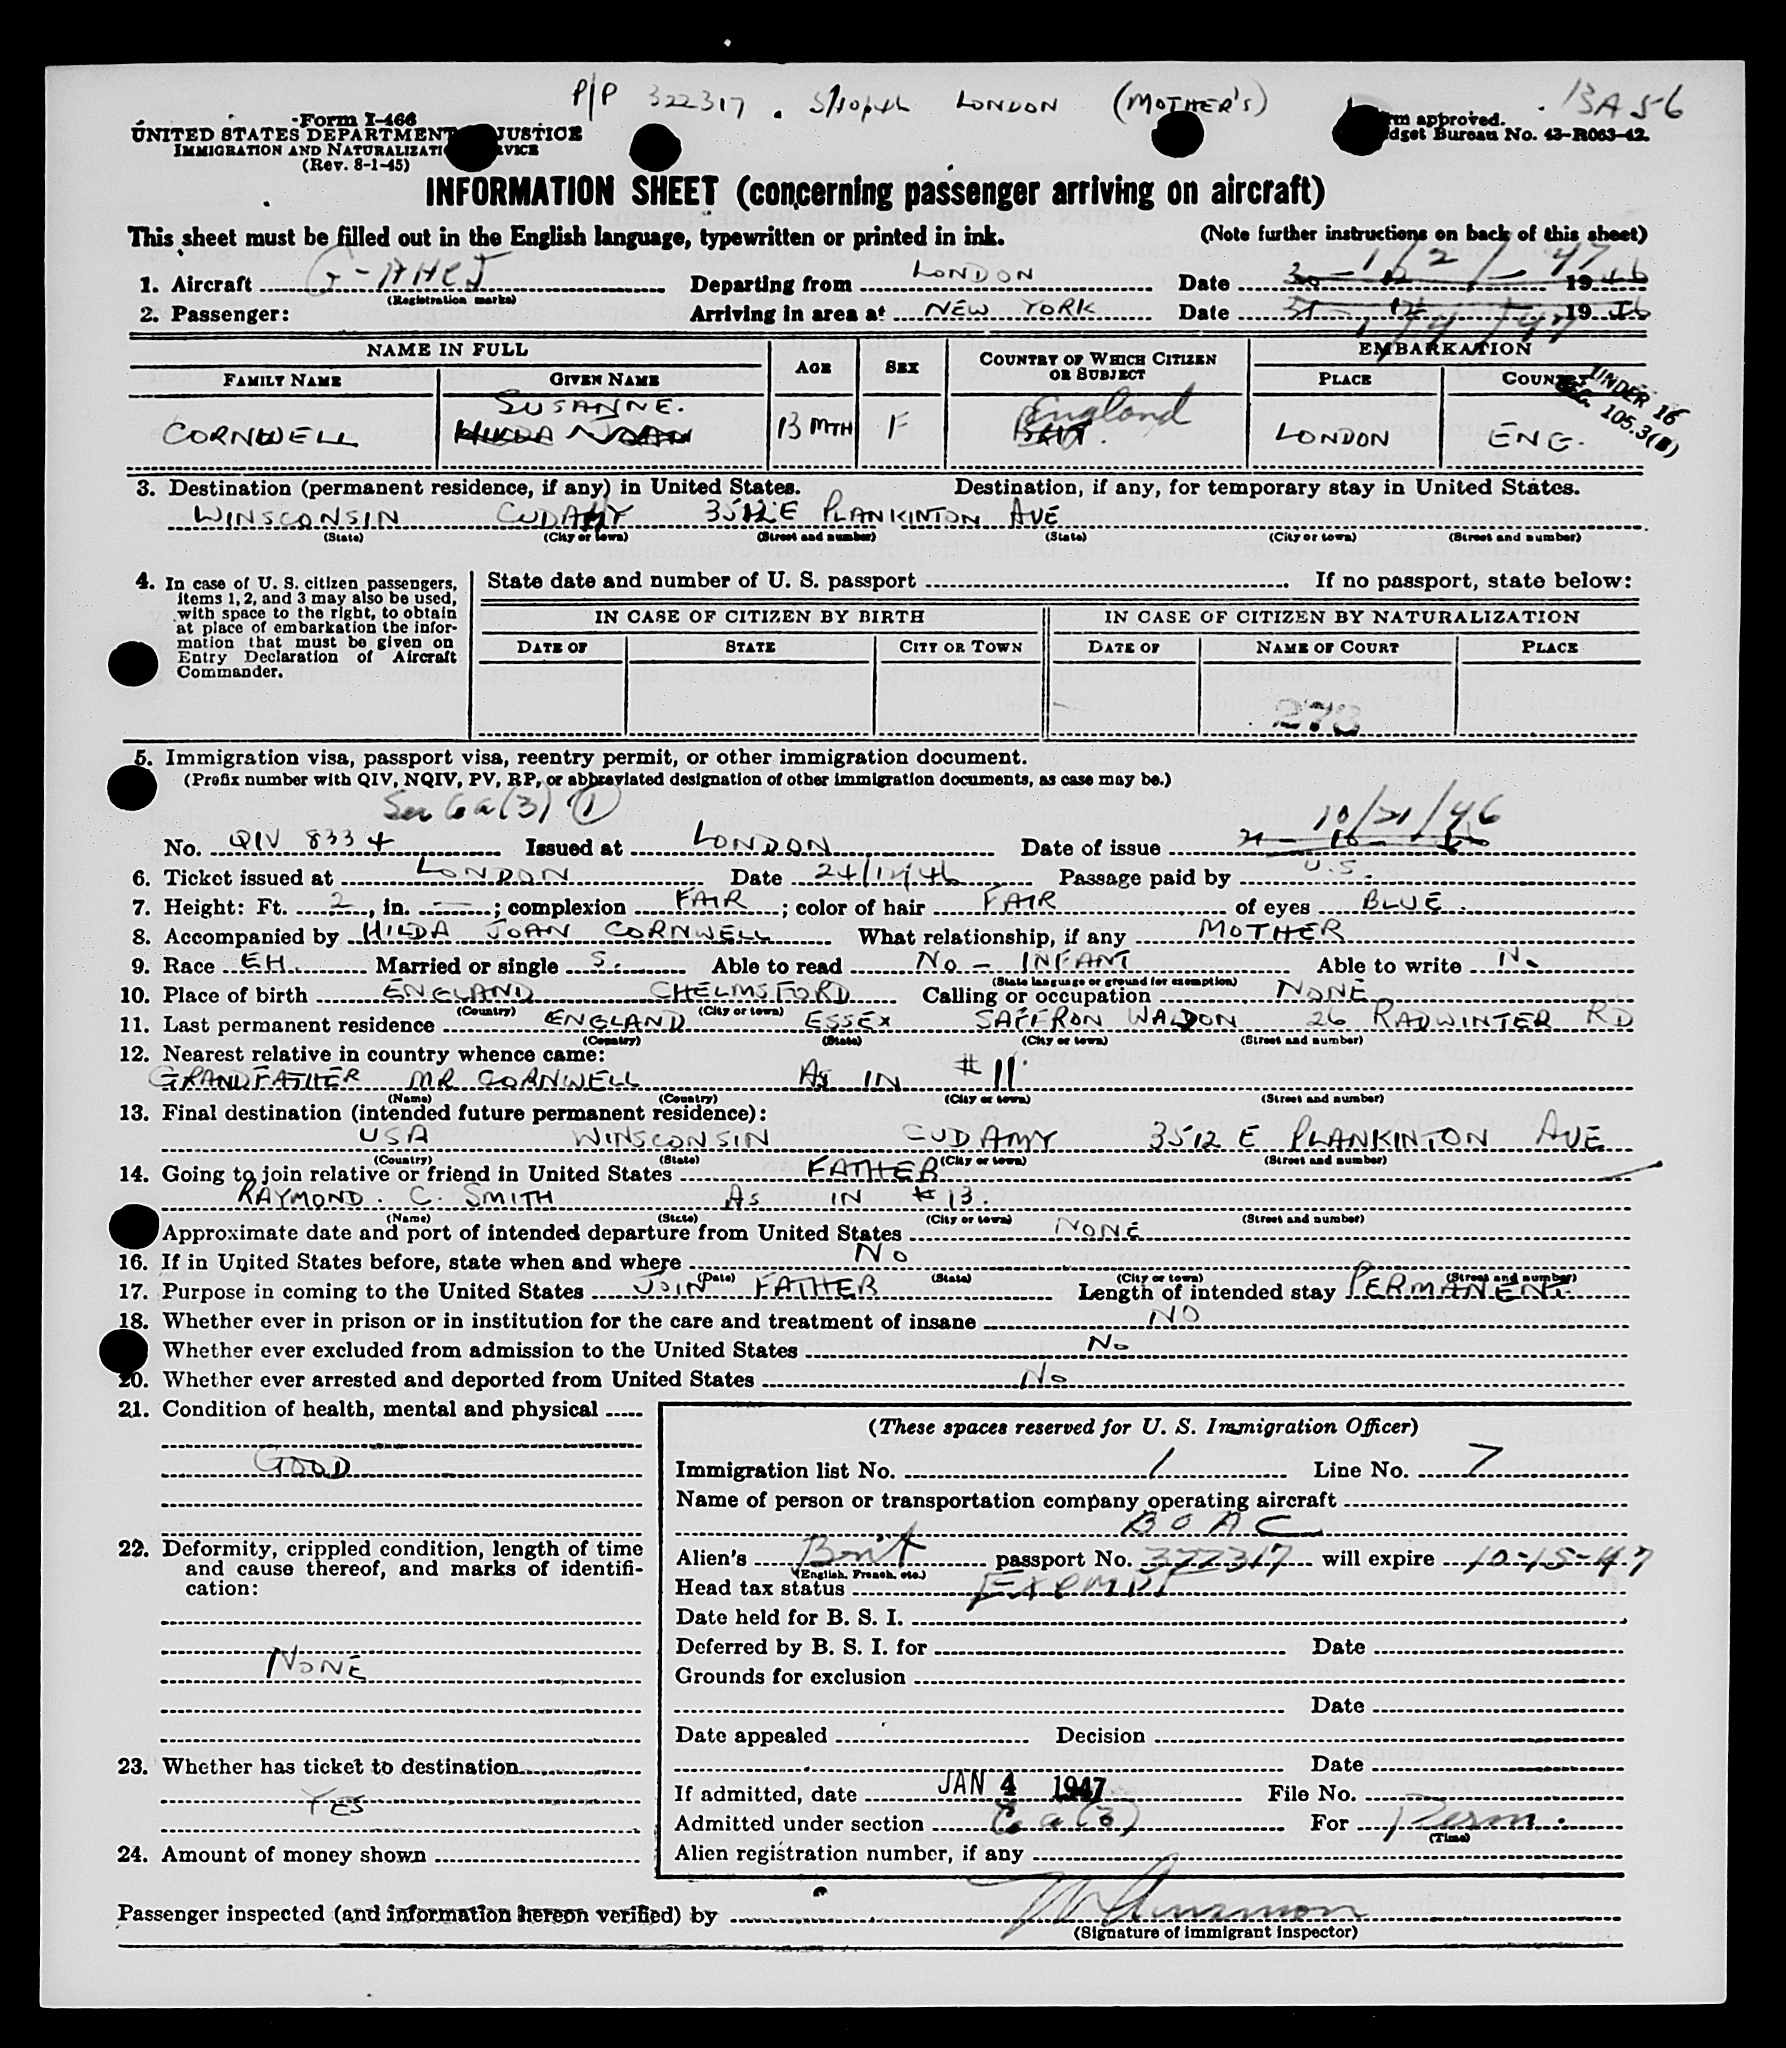 P/P 322317 . LONDON (MOTHER'S) BA 56
Form I-466
UNITED STATES DEPARTMENT JUSTICE
IMMIGRATION AND NATURALIZATI RVICE
(Rev. 8-1-45)
rm approved.
dget Bureau No. 43-R063-42.
INFORMATION SHEET (concerning passenger arriving on aircraft)
This sheet must be filled out in the English language, typewritten or printed in ink. (Note further instructions on back of this sheet)
1. Aircraft Departing from LONDON Date 1/2/47 30-12 1946
(Registration marks)
2. Passenger: Arriving in area at NEW YORK Date 31-12 1946 1/4/47
NAME IN FULL AGE SEX COUNTRY OF WHICH CITIZEN OR SUBJECT EMBARKATION
FAMILY NAME GIVEN NAME PLACE COUNT
UNDER 16
105.3(B)
SUSANNE. England
CORNWELL HILDA JOAN 13 MTH F BRIT. LONDON ENG.
3. Destination (permanent residence, if any) in United States. Destination, if any, for temporary stay in United States.
WINSCONSIN CUDAHY 3512 E PLANKINTON AVE
(State) (City or town) (Street and number) (State) (City or town) (Street and number)
4. In case of U. S. citizen passengers, items 1, 2, and 3 may also be used, with space to the right, to obtain at place of embarkation the information that must be given on Entry Declaration of Aircraft Commander.
State date and number of U. S. passport If no passport, state below:
IN CASE OF CITIZEN BY BIRTH IN CASE OF CITIZEN BY NATURALIZATION
DATE OF STATE CITY OR TOWN DATE OF NAME OF COURT PLACE
273
5. Immigration visa, passport visa, reentry permit, or other immigration document.
(Prefix number with QIV, NQIV, PV, RP, or abbreviated designation of other immigration documents, as case may be.)
Sec 6a(3) 1 10/21/46
No. QIV 8334 Issued at LONDON Date of issue 21-10-46
6. Ticket issued at LONDON Date 24/12/46 Passage paid by U.S.
7. Height: Ft. 2, in. —; complexion FAIR; color of hair FAIR of eyes BLUE.
8. Accompanied by HILDA JOAN CORNWELL What relationship, if any MOTHER
9. Race EH. Married or single S. Able to read NO - INFANT Able to write No
(State language or ground for exemption)
10. Place of birth ENGLAND CHELMSFORD Calling or occupation NONE
(Country) (City or town)
11. Last permanent residence ENGLAND ESSEX SAFFRON WALDON 26 RADWINTER RD
(Country) (State) (City or town) (Street and number)
12. Nearest relative in country whence came:
GRANDFATHER MR CORNWELL As IN #11
(Name) (Country) (City or town) (Street and number)
13. Final destination (intended future permanent residence):
USA WINSCONSIN CUDAMY 3512 E PLANKINTON AVE
(Country) (State) (City or town) (Street and number)
14. Going to join relative or friend in United States FATHER
RAYMOND. C. SMITH As IN #13.
(Name) (State) (City or town) (Street and number)
Approximate date and port of intended departure from United States NONE
16. If in United States before, state when and where No
(Date) (State) (City or town) (Street and number)
17. Purpose in coming to the United States JOIN FATHER Length of intended stay PERMANENT
18. Whether ever in prison or in institution for the care and treatment of insane NO
Whether ever excluded from admission to the United States No
20. Whether ever arrested and deported from United States No
21. Condition of health, mental and physical
GOOD
22. Deformity, crippled condition, length of time and cause thereof, and marks of identification:
NONE
23. Whether has ticket to destination
YES
24. Amount of money shown
(These spaces reserved for U. S. Immigration Officer)
Immigration list No. 1 Line No. 7
Name of person or transportation company operating aircraft
BOAC
Alien's Brit passport No. 322317 will expire 10-15-47
(English, French, etc.)
Head tax status Exempt
Date held for B. S. I.
Deferred by B. S. I. for Date
Grounds for exclusion
Date
Date appealed Decision
Date
If admitted, date JAN 4 1947 File No.
Admitted under section 6a(3) For Perm.
(Time)
Alien registration number, if any
Passenger inspected (and information hereon verified) by
(Signature of immigrant inspector)